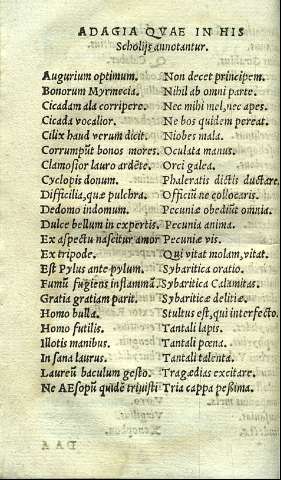 ADAGIA QVAE IN HIS
Scholijs annotantur.
Augurium optimum.
Bonorum Myrmecia.
Cicadam ala corripere.
Cicada vocalior.
Cilix haud verum dicit.
Corrumpũt bonos mores.
Clamosior lauro ardẽte.
Cyclopis donum.
Difficilia, quæ pulchra.
Dedomo indomum.
Dulce bellum in expertis.
Ex aspectu nascitur amor
Ex tripode.
Est Pylus ante pylum.
Fumũ fugiens in flammã.
Gratia gratiam parit.
Homo bulla.
Homo futilis.
Illotis manibus.
In sana laurus.
Laureũ baculum gesto.
Ne AEsopũ quidẽ trivisti
Non decet principem.
Nihil ab omni parte.
Nec mihi mel, nec apes.
Ne bos quidem pereat.
Niobes mala.
Oculata manus.
Orci galea.
Phaleratis dictis ductare.
Officiũ ne collocaris.
Pecuniæ obediũt omnia.
Pecunia anima.
Pecuniæ vis.
Qui vitat molam, vitat.
Sybaritica oratio.
Sybaritica Calamitas.
Sybariticæ delitiæ.
Stultus est, qui interfecto.
Tantali lapis.
Tantali pœna.
Tantali talenta.
Tragœdias excitare.
Tria cappa peßima.